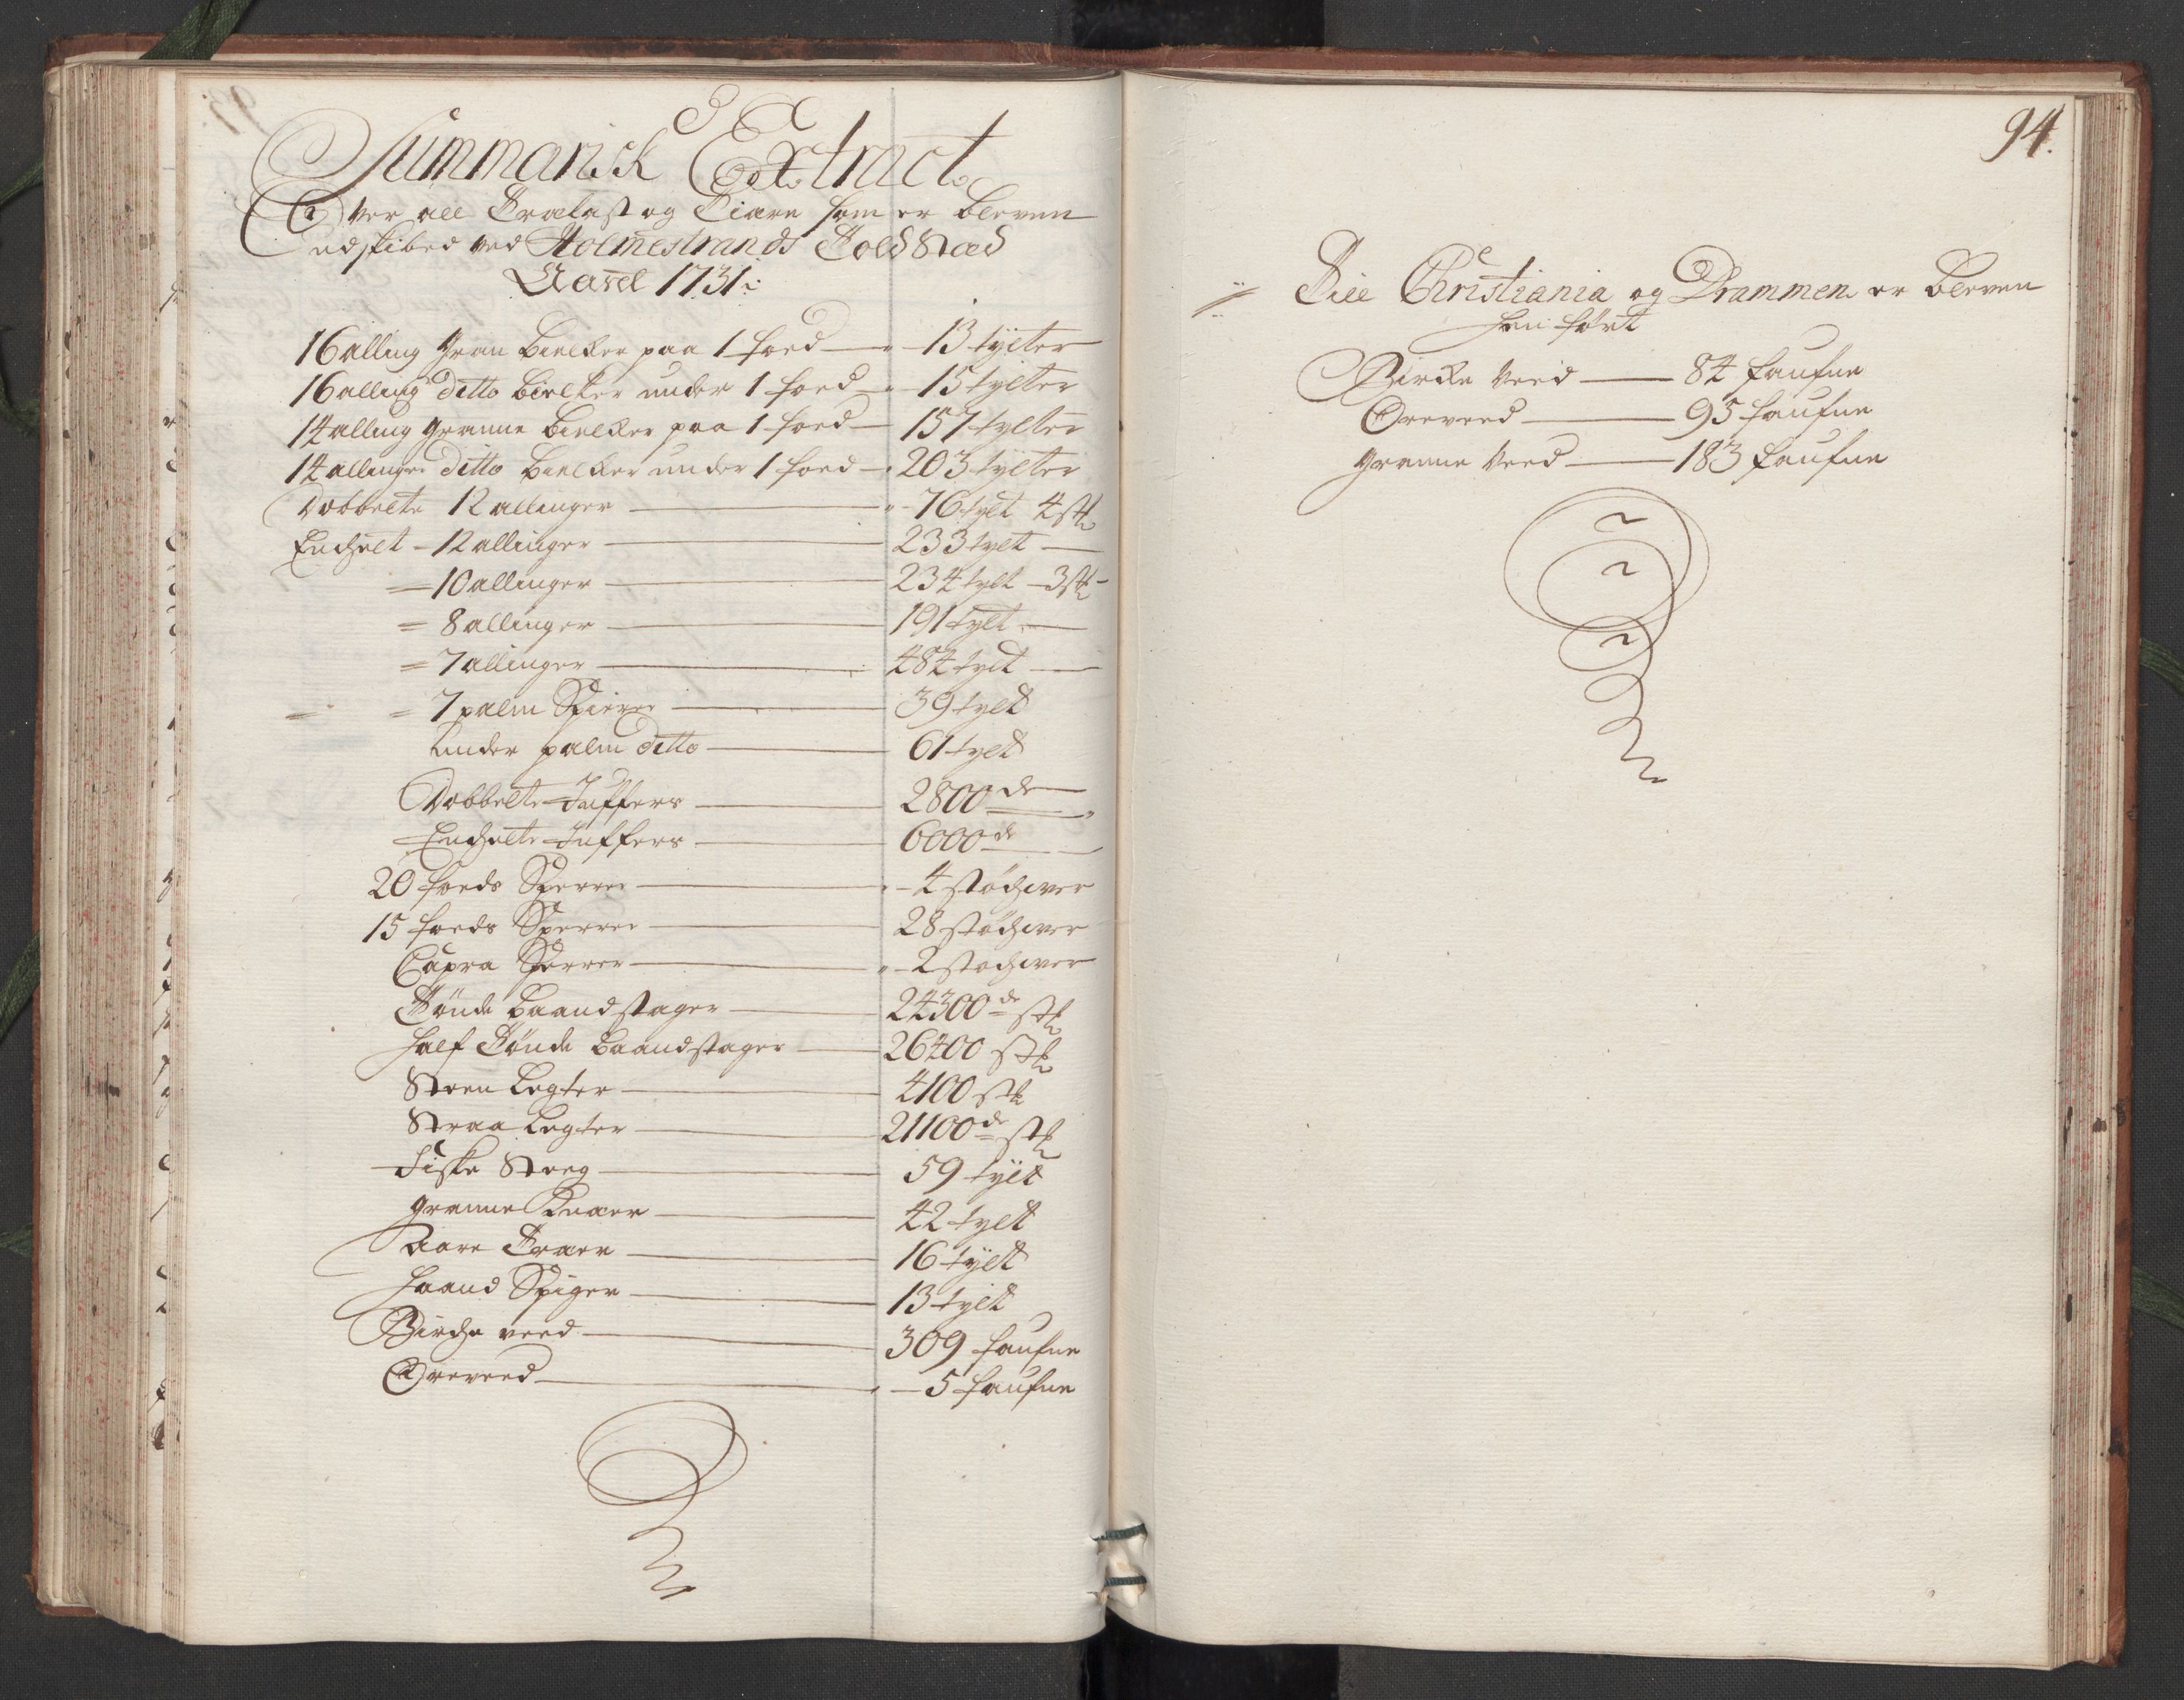 Summarisk Extract
Over all Trælast og Tiære som er bleven
udskibed ved Holmestrands Told Stæd
Aarel 1731:
16 alling Gran bielker paa 1 foed — 13 tylter
16 alling ditto bielker under 1 foed — 15 tylter
14 alling granne bielker paa 1 foed — 157 tylter
14 allinger ditto bielker under 1 foed — 203 tylter
Dobbelte 12 allinger — 76 tylt 4 stk
Enchelt - 12 allinger — 233 tylt —
= 10 allinger — 234 tylt - 3 stk
= 8 allinger — 191 tylt —
= 7 allinger — 484 tylt —
= 7 palm Spirer — 39 tylt
under palm ditto — 61 tylt
Dobbelte Juffers — 2800de
Enchelte Juffers — 6000de
20 foeds Sperrer — 4 støchver
15 foeds Sperrer — 28 støchver
Capra Sperrer — 2 støchver
Tønde baandstager — 24300de stk
half Tønde baandstager — 26400 stk
Steen Legter — 4100 stk
Straa Legter — 21100de stk
Fiske Steng — 59 tylt
granne Knæer — 42 tylt
Aare Træer — 16 tylt
haand Spiger — 13 tylt
Birche veed — 309 faufne
Oreveed — 5 faufne
94.
Till Christiania og Drammen er bleven
hen ført
Birke Veed — 84 faufne
Oreveed — 95 faufne
granne Veed — 183 faufne